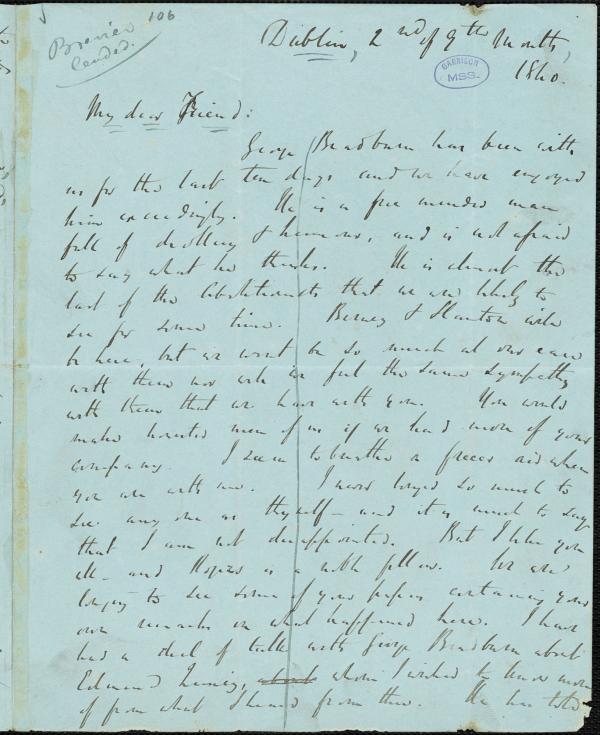 106
Brevier
Leaded.
Dublin, 2nd of 9th Month,
1840.
GARRISON
MSS.
My dear Friend:
George Bradburn has been with
us for the last ten days and we have enjoyed
him exceedingly. He is a free minded man
full of drollery & humour, and is not afraid
to say what he thinks. He is almost the
last of the Abolitionists that we are likely to
see for some time. Birney & Stanton will
be here, but we wont be so much at our ease
with them nor will we feel the same sympathy
with them that we have with you. You would
make hearted men of us if we had more of your
company. I seem to breathe a freer air when
you are with me. I never longed so much to
see any one as thyself - and it is much to say
that I am not disappointed. But I like you
all - and Rogers is a noble fellow. We are
longing to see some of your papers containing your
own remarks on what happened here. I have
had a deal of talk with George Bradburn about
Edmund Quincy, whom I wished to know more
of from what I heard from thee. He has told